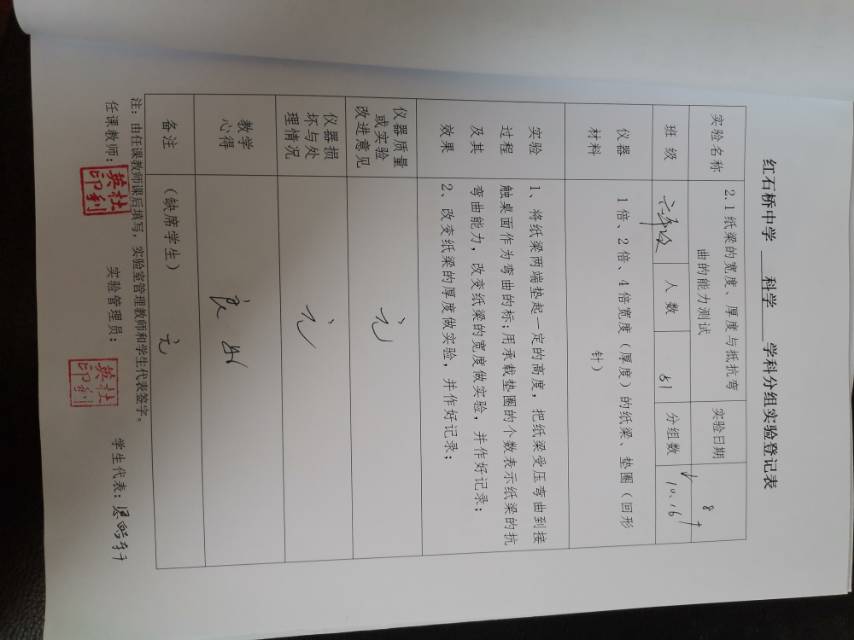 红石桥中学 科学 学科分组实验登记表
实验名称 2.1 纸梁的宽度、厚度与抵抗弯曲的能力测试 实验日期
班级 六年级 人数 51 分组数 8
10.16
仪器材料 1倍、2倍、4倍宽度（厚度）的纸梁、垫圈（回形针）
实验过程及其效果
1、将纸梁两端垫起一定的高度，把纸梁受压弯曲到接
触桌面作为弯曲的标;用承载垫圈的个数表示纸梁的抗
弯曲能力，改变纸梁的宽度做实验，并作好记录；
2、改变纸梁的厚度做实验，并作好记录；
仪器质量或实验改进意见 无
仪器损坏与处理情况 无
教学心得 良好
备注 （缺席学生） 无
注：由任课教师课后填写，实验室管理教师和学生代表签字。
任课教师： 英杜印利 实验管理员： 英杜印利 学生代表：